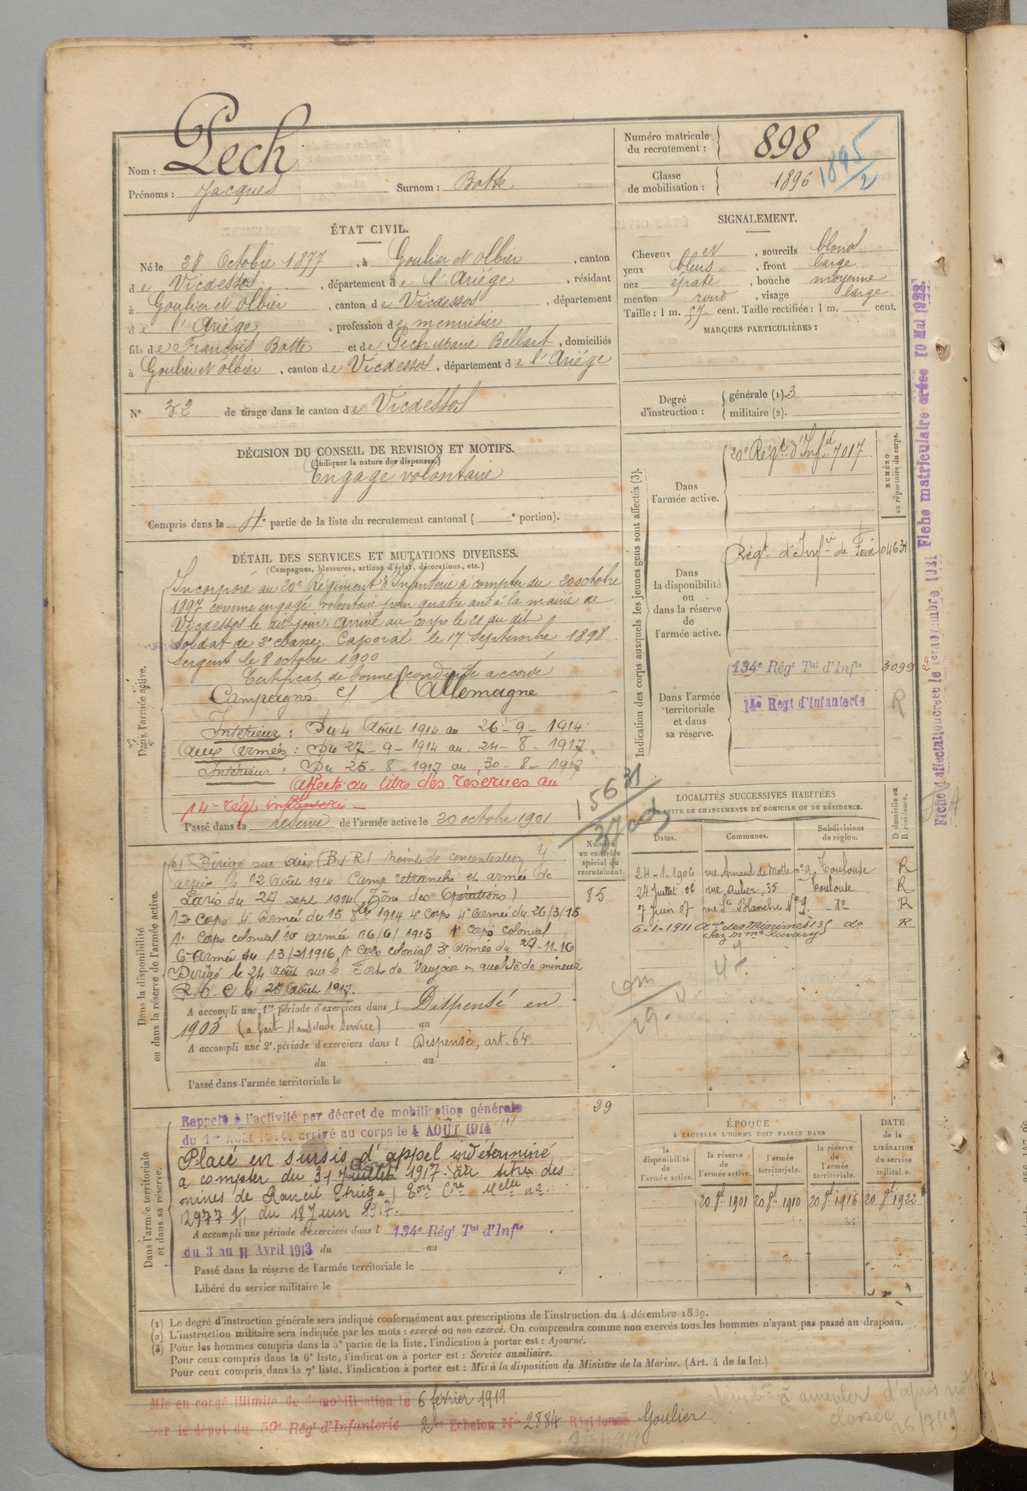 Nom : Pech
Prénoms : Jacques Surnom : Botte
Numéro matricule du recrutement : 898
Classe de mobilisation : 1896 1895/2
ÉTAT CIVIL.
Né le 28 Octobre 1877, à Goulier et Olbier, canton
de Vicdessos, département de l'Ariège, résidant
à Goulier et Olbier, canton de Vicdessos, département
de l'Ariège, profession de menuisier
fils de François Botte et de Pech Marie Bellart, domiciliés
à Goulier et Olbier, canton de Vicdessos, département de l'Ariège
N° 32 de tirage dans le canton de Vicdessos
SIGNALEMENT.
Cheveux et, sourcils blond
yeux bleus, front large
nez épaté, bouche moyenne
menton rond, visage large
Taille : 1 m. 57 cent. Taille rectifiée : 1 m. cent.
MARQUES PARTICULIÈRES :
Degré d'instruction : générale (1). 3
militaire (2).
DÉCISION DU CONSEIL DE REVISION ET MOTIFS.
(Indiquer la nature des dispenses.)
Engagé volontaire
Compris dans la 4e partie de la liste du recrutement cantonal ( e portion).
DÉTAIL DES SERVICES ET MUTATIONS DIVERSES.
(Campagnes, blessures, actions d'éclat, décorations, etc.)
Dans l'armée active.
Incorporé au 20e Régiment d'Infanterie à compter du 20 octobre
1897 comme engagé volontaire pour quatre ans à la mairie de
Vicdessos le jour. Arrivé au corps le 21 du dit
Soldat de 2e classe. Caporal le 17 Septembre 1898
Sergent le 8 octobre 1900
Certificat de bonne conduite accordé
Campagne c/ l'Allemagne
Intérieur : Du 4 Août 1914 au 26-9-1914
Aux Armées : Du 27-9-1914 au 24-8-1917
Intérieur : Du 25-8-1917 au 30-8-1917
Affecté au titre des réserves au
14e régt infanterie
Passé dans la réserve de l'armée active le 20 octobre 1901
15631
Indication des corps auxquels les jeunes gens sont affectés (3).
NUMÉRO au répertoire du corps.
Dans l'armée active. 20e Régt d'Infie 7017
Dans la disponibilité ou dans la réserve de l'armée active. Régt d'Infie de Foix 04631
Dans l'armée territoriale et dans sa réserve. 134e Régt Tal d'Infie 3099
14e Regt d'Infanterie R
LOCALITÉS SUCCESSIVES HABITÉES
PAR SUITE DE CHANGEMENTS DE DOMICILE OU DE RÉSIDENCE.
Dates. Communes. Subdivisions de région. D domicile ou R résidence.
Numéro au contrôle spécial du recrutement.
85
24-1-1906 rue Arnaud de Molle n° 2, Toulouse R
24 Juillet 06 rue Auber, 35 Toulouse R
7 Juin 07 rue Ste Blanche n° 9 do R
6-1-1911 Ave des Minimes 131 do R
Dans la disponibilité ou dans la réserve de l'armée active.
arrivé le 12 Août 1914 Camp retranché et armée de
Paris du 27 sept 1914 (Zône des Opérations)
4e Armée du 15 1914 4e Corps 4e Armée du 26/3/15
1er Corps colonial 10e Armée 16/6/1915 1er Corps colonial
6e Armée du 13/2/1916, 1er Corps colonial 3e Armée du 27-11-16
Dirigé le 24 Août sur le Fort de Vaujour en qualité de mineur
le 25 Août 1917.
A accompli une 1re période d'exercices dans l Dispensé en
1905 au
A accompli une 2e période d'exercices dans l Dispensé, art. 64.
du au
Passé dans l'armée territoriale le
39
Dans l'armée territoriale et dans sa réserve.
Rappelé à l'activité par décret de mobilisation générale
du 1er Août 1914, arrivé au corps le 4 AOÛT 1914
Placé en sursis d'appel indéterminé
à compter du 31 Juillet 1917 au titre des
mines de Rancié (Ariège)
12977 1/11 du 18 Juin 1917.
A accompli une période d'exercices dans l 134e Régt Tal d'Infie
du 3 au 11 Avril 1913 du au
Passé dans la réserve de l'armée territoriale le
Libéré du service militaire le
ÉPOQUE
A LAQUELLE L'HOMME DOIT PASSER DANS
la disponibilité de l'armée active. la réserve de l'armée active. l'armée territoriale. la réserve de l'armée territoriale.
DATE de la LIBÉRATION du service militaire.
20 8bre 1901 20 8bre 1910 20 8bre 1916 20 8bre 1922
(1) Le degré d'instruction générale sera indiqué conformément aux prescriptions de l'instruction du 4 décembre 1889.
(2) L'instruction militaire sera indiquée par les mots : exercé ou non exercé. On comprendra comme non exercés tous les hommes n'ayant pas passé au drapeau.
(3) Pour les hommes compris dans la 5e partie de la liste, l'indication à porter est : Ajourné.
Pour ceux compris dans la 6e liste, l'indication à porter est : Service auxiliaire.
Pour ceux compris dans la 7e liste, l'indication à porter est : Mis à la disposition du Ministre de la Marine. (Art. 4 de la loi.)
Mis en congé illimité de démobilisation le 6 février 1919
par le dépôt du 59e Régt d'Infanterie 2e Echelon N° 2884 Résidence Goulier
à annuler d'après
classe 26/7/19
Fiche matriculaire créée 10 Mai 1922